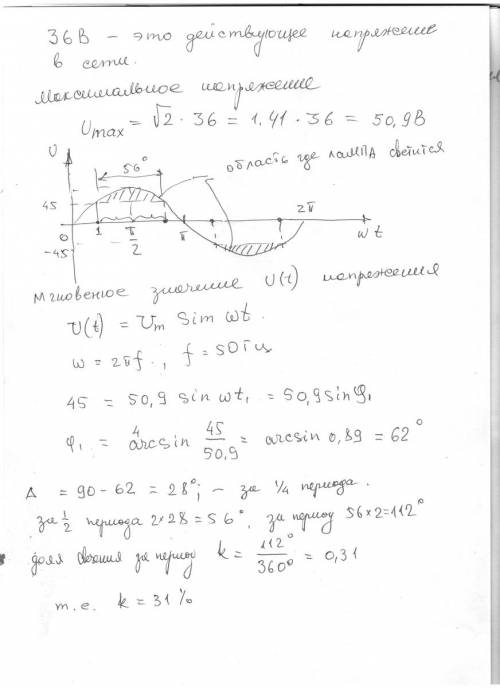 36В – это действующее напряжение
в сети.
Максимальное напряжение
Umax = √2 · 36 = 1,41 · 36 = 50,9В
U
56°
область где лампа светится
45
0
1
π/2
π
2π
ωt
-45
Мгновенное значение U(t) напряжения
U(t) = Um Sin ωt.
ω = 2πf., f = 50Гц
45 = 50,9 sin ωt₁ = 50,9 sin φ₁
φ₁ = arcsin 45/50,9 = arcsin 0,89 = 62°
Δ = 90 - 62 = 28°; – за 1/4 периода.
за 1/2 периода 2×28 = 56°, за период 56×2=112°
доля свечения за период k = 112°/360° = 0,31
т.е. k = 31%